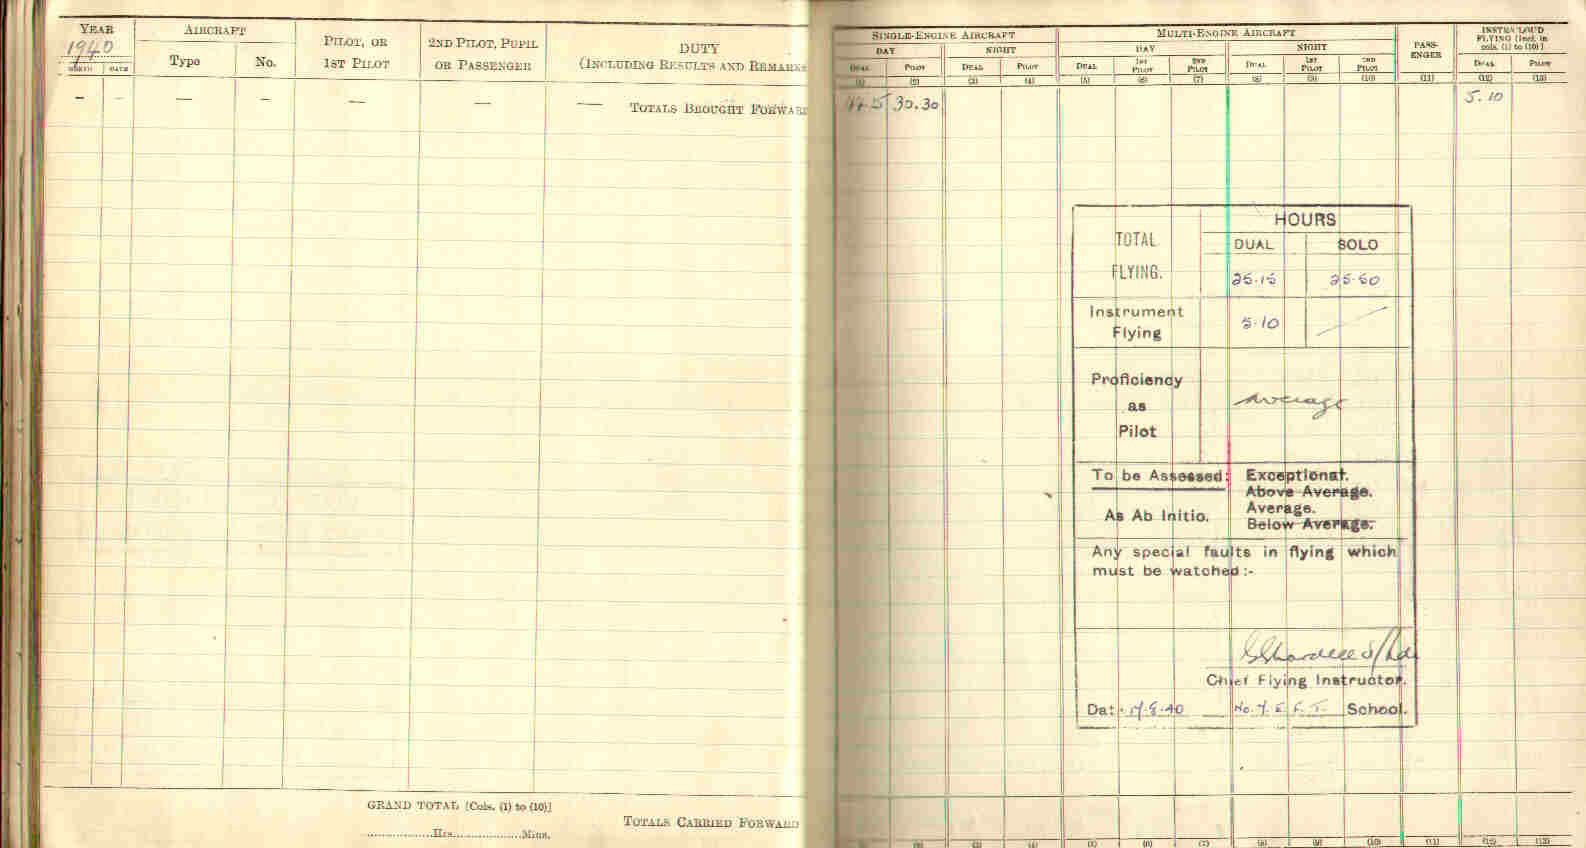 YEAR AIRCRAFT PILOT, OR 1ST PILOT 2ND PILOT, PUPIL OR PASSENGER DUTY (INCLUDING RESULTS AND REMARKS
1940
MONTH DATE Type No.
— — — — — — — TOTALS BROUGHT FORWARD
GRAND TOTAL [Cols. (1) to (10)]
Hrs. Mins.
TOTALS CARRIED FORWARD
SINGLE-ENGINE AIRCRAFT MULTI-ENGINE AIRCRAFT PASS-ENGER INSTR/CLOUD FLYING [Incl. in cols. (1) to (10)]
DAY NIGHT DAY NIGHT
DUAL PILOT DUAL PILOT DUAL 1ST PILOT 2ND PILOT DUAL 1ST PILOT 2ND PILOT DUAL PILOT
(1) (2) (3) (4) (5) (6) (7) (8) (9) (10) (11) (12) (13)
30.30 5.10
HOURS
TOTAL FLYING. DUAL SOLO
25.15 25.50
Instrument Flying 5.10
Proficiency
as
Pilot
Average
To be Assessed: Exceptional.
Above Average.
As Ab Initio. Average.
Below Average.
Any special faults in flying which
must be watched :-
Chief Flying Instructor.
Dat. School.
(2) (3) (4) (5) (6) (7) (8) (9) (10) (11) (12) (13)